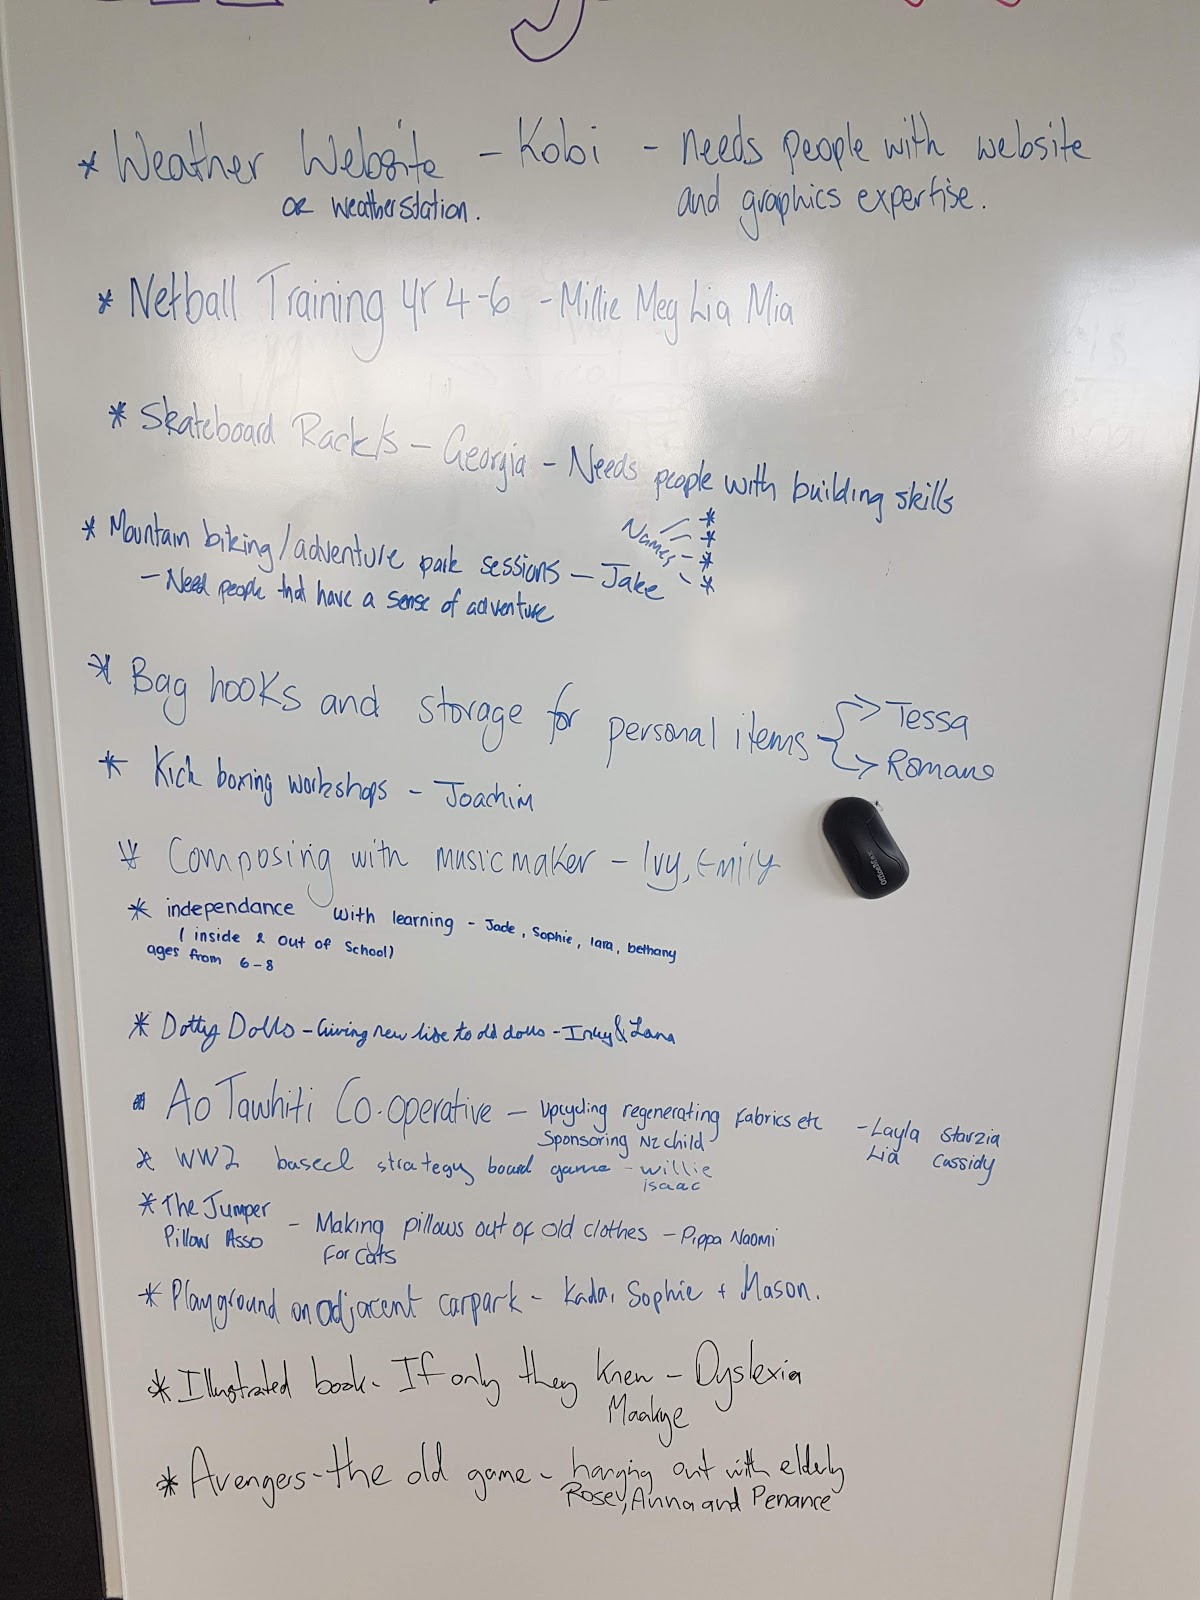 * Weather Website - Kobi - needs people with website
or weatherstation. and graphics expertise.
* Netball Training yr 4-6 - Millie Meg Lia Mia
* Skateboard Rack/s - Georgia - Needs people with building skills
Names * * * *
* Mountain biking/adventure park sessions - Jake
- Need people that have a sense of adventure
* Bag hooks and storage for personal items
Tessa
Romano
* Kick boxing workshops - Joachim
OfficeMax
* Composing with music maker - Ivy, Emily
* independance with learning - Jade, Sophie, lara, bethany
(inside & out of School)
ages from 6-8
* Dotty Dolls - Giving new life to old dolls - Indy & Lana
* Ao Tawhiti Co-operative - Upcycling regenerating Fabrics etc - Layla Starzia
Sponsoring NZ child Lia Cassidy
* WW2 based strategy board game - willie
isaac
* The Jumper
Pillow Asso - Making pillows out of old clothes - Pippa Naomi
For cats
* Playground on adjacent carpark - Kada, Sophie + Mason.
* Illustrated book - If only they knew - Dyslexia
Maakye
* Avengers - the old game - hanging out with elderly
Rosey, Anna and Penance